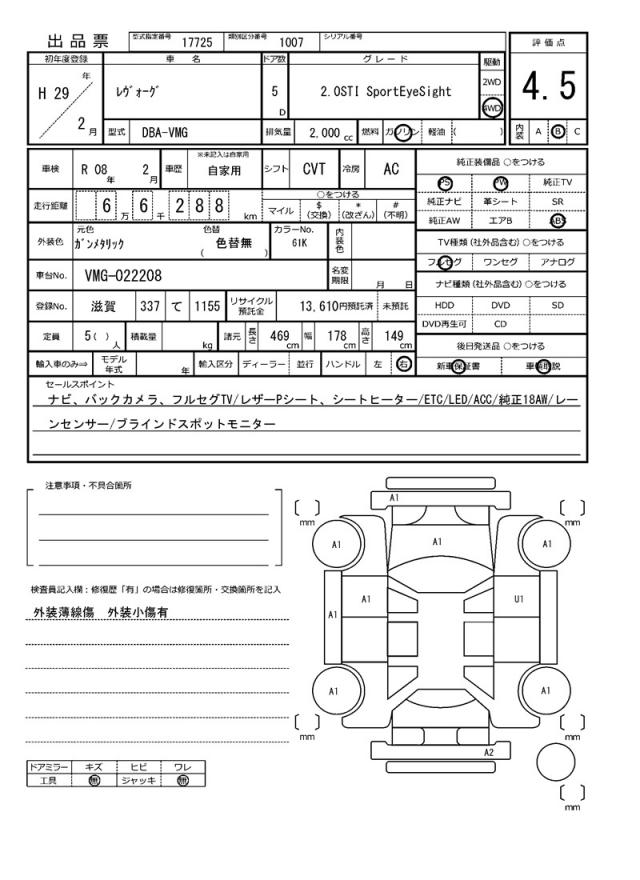 出品票 型式指定番号 17725 類別区分番号 1007 シリアル番号
評価点
4.5
内装 A B C
初年度登録 車名 ドア数 グレード 駆動
H 29年 2月 ﾚｳﾞｫｰｸﾞ 5D 2.0STI SportEyeSight 2WD 4WD
型式 DBA-VMG 排気量 2,000cc 燃料 ガソリン 軽油 ( )
車検 R 08年 2月 車歴 ※未記入は自家用 自家用 シフト CVT 冷房 AC
走行距離 6 6万 6千 2 8 8 km
○をつける
マイル $(交換) *(改ざん) #(不明)
外装色 元色 ｶﾞﾝﾒﾀﾘｯｸ 色替 ( 色替無 ) カラーNo. 61K 内装色
車台No. VMG-022208 名変期限 月 日
登録No. 滋賀 337 て 1155 リサイクル預託金 13,610円預託済 未預託
定員 5( )人 積載量 kg 諸元 長さ 469cm 幅 178cm 高さ 149cm
輸入車のみ⇒ モデル年式 年 輸入区分 ディーラー 並行 ハンドル 左 右
純正装備品 ○をつける
PS PW 純正TV
純正ナビ 革シート SR
純正AW エアB ABS
TV種類 (社外品含む) ○をつける
フルセグ ワンセグ アナログ
ナビ種類 (社外品含む) ○をつける
HDD DVD SD
DVD再生可 CD
後日発送品 ○をつける
新車保証書 車輌取説
セールスポイント
ナビ、バックカメラ、フルセグTV/レザーPシート、シートヒーター/ETC/LED/ACC/純正18AW/レー
ンセンサー/ブラインドスポットモニター
注意事項・不具合箇所
検査員記入欄：修復歴「有」の場合は修復箇所・交換箇所を記入
外装薄線傷 外装小傷有
ドアミラー キズ ヒビ ワレ
工具 無 ジャッキ 無
A1
mm mm
A1 A1 A1
A1 A1 U1
A1 A1
mm mm
A2
mm